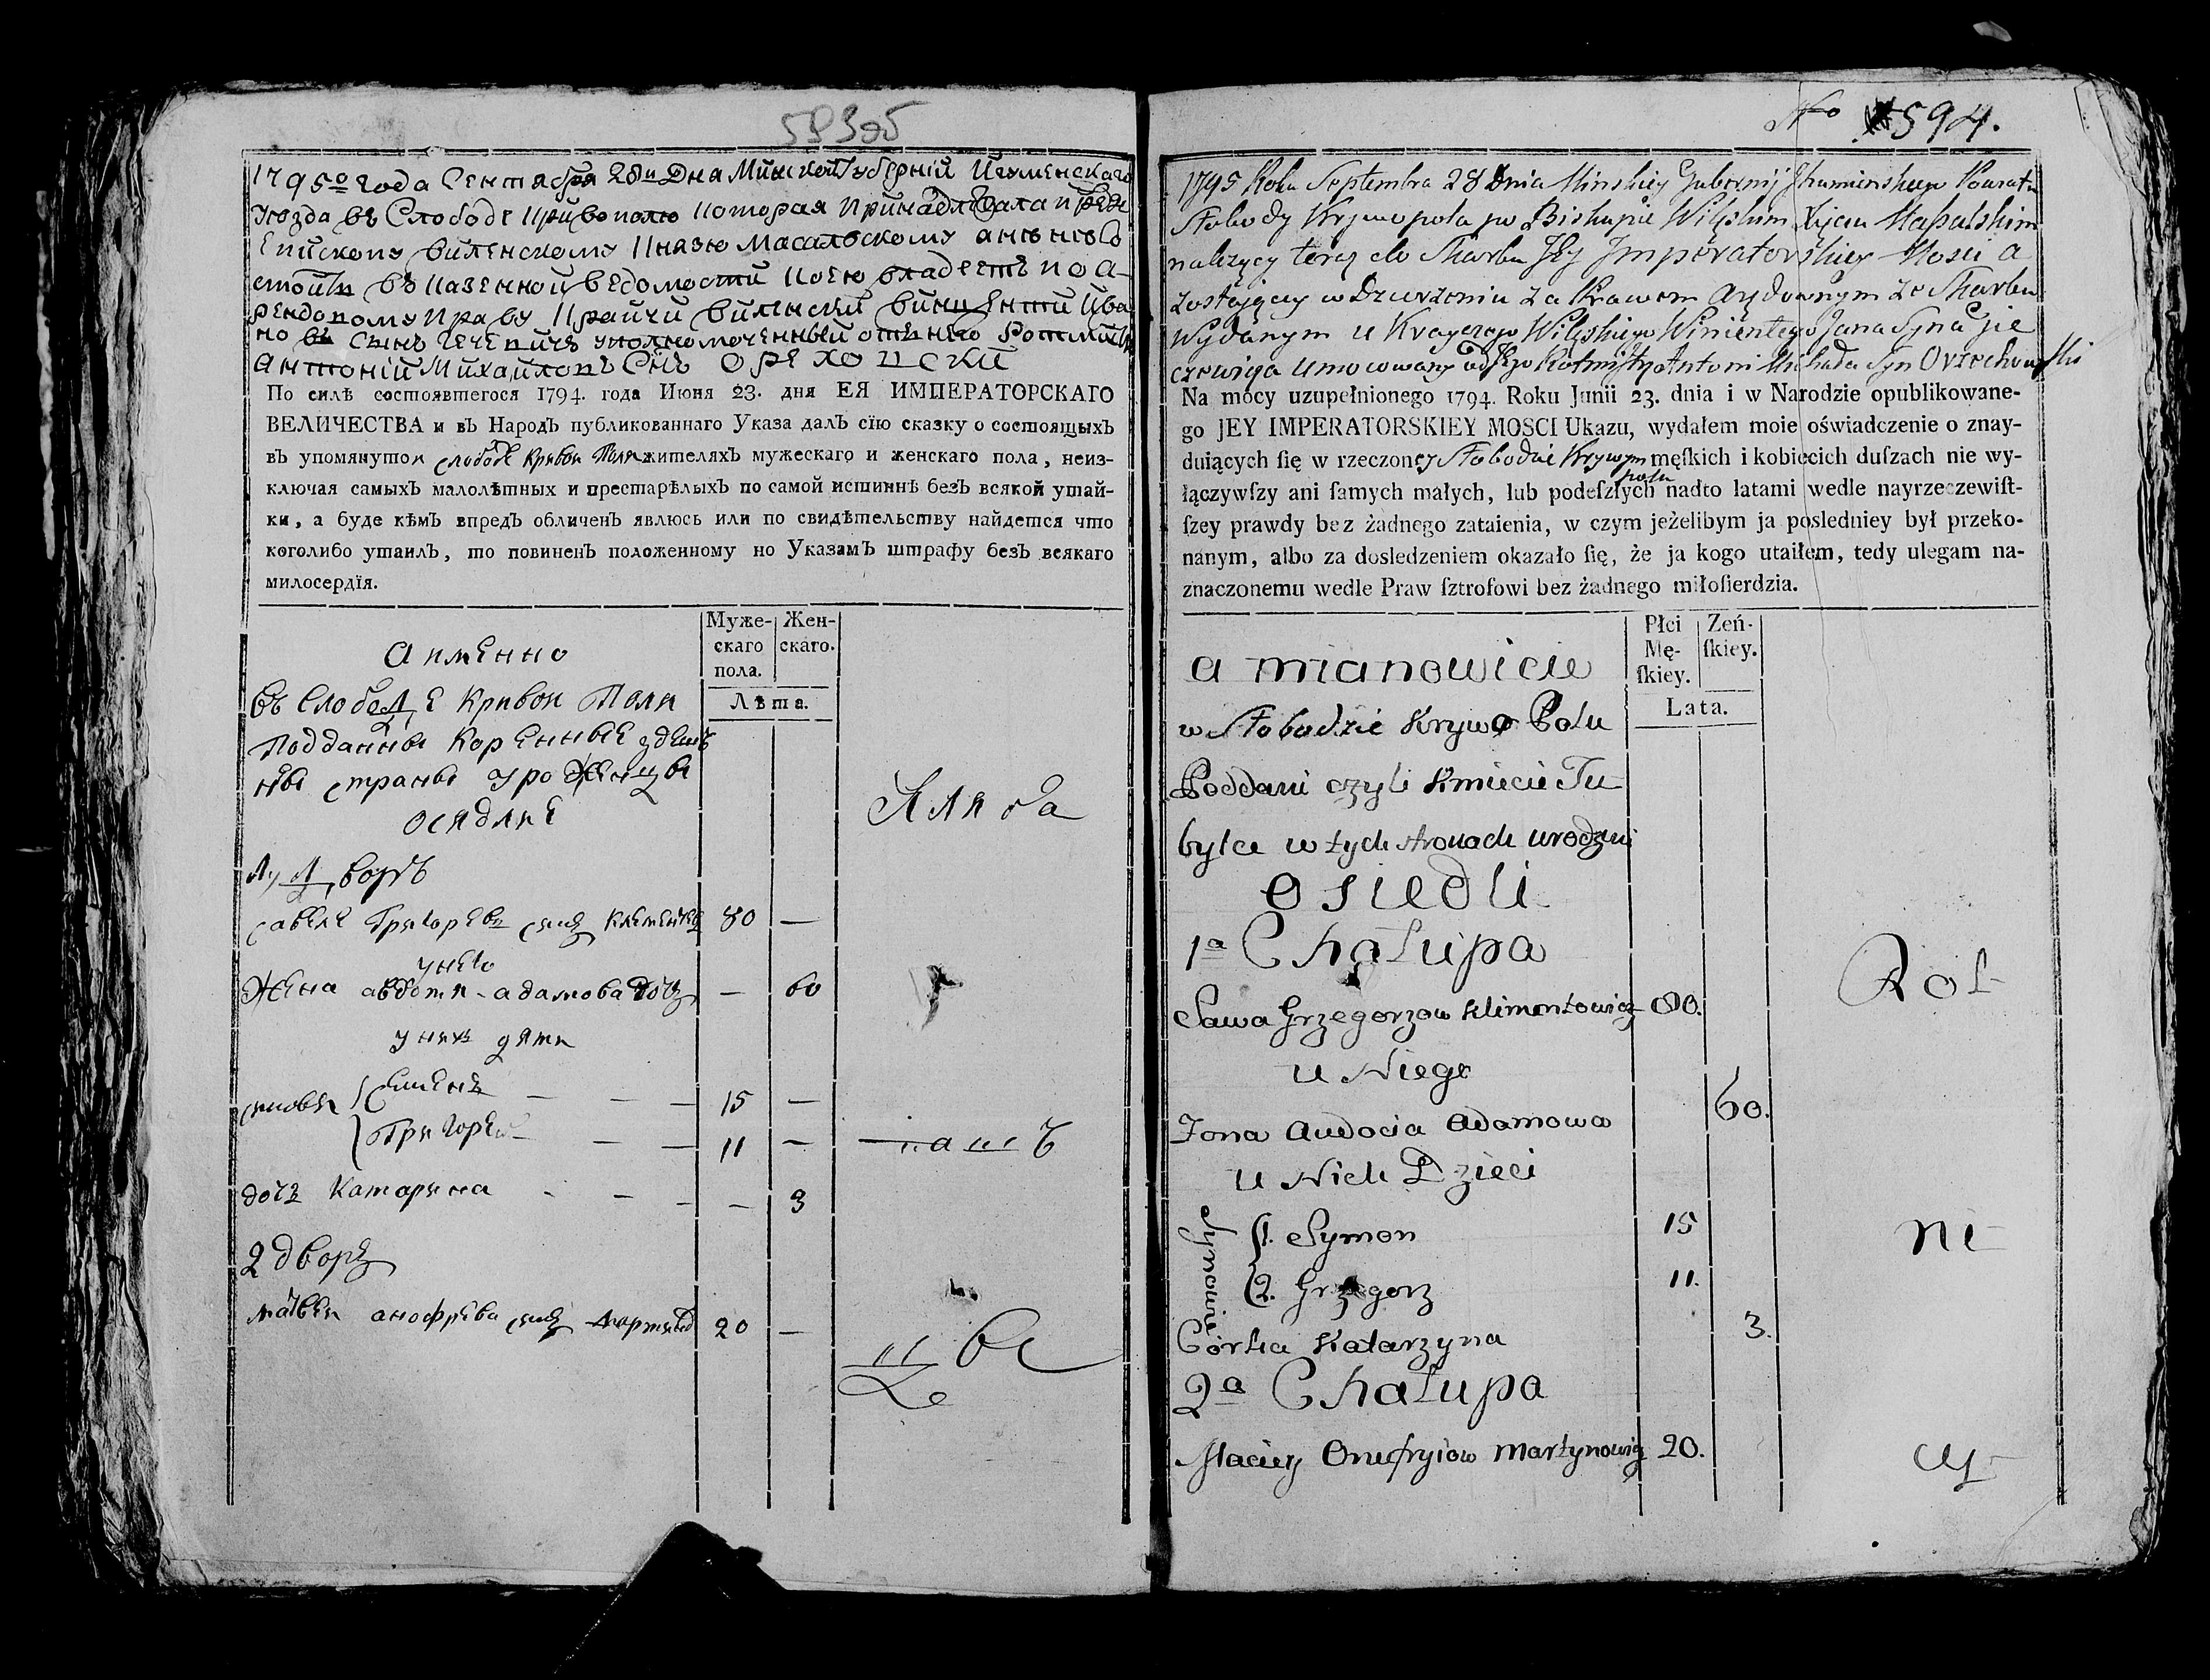 593об
1795го года Сентября 28ч Дня Минской Губерніи Игуменскаго
Уезда въ Слободе Кривополю которая принадлежала прежде
Епископу виленскому Князю Масальскому а ныне со
стоит въ казенной ведомости коею владеетъ по а-
рендовому праву Крайчи виленский Винцентий Ива
новъ Сынъ уполномоченный отъ него Ротмистр
Антоній Михайловъ Снъ Ореховски
По силѣ состоявшегося 1794. года Июня 23. дня ЕЯ ИМПЕРАТОРСКАГО
ВЕЛИЧЕСТВА и въ Народъ публикованнаго Указа далъ сїю сказку о состоящыхъ
въ упомянутои слободе Кривои Поли жителяхъ мужескаго и женскаго пола, неиз-
ключая самыхъ малолѣтных и престарѣлыхъ по самой истиннѣ безъ всякой утай-
ки, а буде кѣмъ впредъ обличенъ явлюсь или по свидѣтельству найдется что
коголибо утаилъ, то повиненъ положенному по Указамъ штрафу безъ всякаго
милосердїя.
Муже-
скаго
пола.
Жен-
скаго.
Лѣта.
а именно
въ Слободе Кривои Поли
Подданные Коренные здеш
ные страны уроженцы
оседлие
1 дворъ
савеле Григоревъ сынъ 80 —
у него
Жена авдотя адамова дочь — 60
у них дети
сыновья Семенъ — — — 15 —
Григореи — — — 11 —
дочь Катарина - — - — 3
2 дворъ
матвеи анофрева сынъ 20 —
Кляда
No 594.
1795 Roku Septembra 28 Dnia Minskiey Gubernij Ihumenskiego Powiatu
Słobody Krywopola po Biskupie Wileńskim Xięciu Massalskim
należący teraz do Skarbu Jey Imperatorskiey Mosci a
zostający w Dzierżeniu za Prawem Arędownym ze Skarbu
Wydanym u Krayczego Wileńskiego Wincentego Jana Syna Gie
czewicza umocowany od Jego Rotmistrz Antoni Michała Syn Orzechowski
Na mocy uzupełnionego 1794. Roku Junii 23. dnia i w Narodzie opublikowane-
go JEY IMPERATORSKIEY MOSCI Ukazu, wydałem moie oświadczenie o znay-
duiących ſię w rzeczoney Słobodzie Krywym polu męſkich i kobiecich duſzach nie wy-
łączywſzy ani ſamych małych, lub podeſzłych nadto latami wedle nayrzeczewiſt-
ſzey prawdy bez żadnego zataienia, w czym jeżelibym ja posledniey był przeko-
nanym, albo za dosledzeniem okazało ſię, że ja kogo utaiłem, tedy ulegam na-
znaczonemu wedle Praw ſztrofowi bez żadnego miłoſierdzia.
Płci
Mę-
ſkiey.
Zeń-
ſkiey.
Lata.
a mianowicie
w Słobodzie Krywo Polu
Poddani czyli Kmiecie Tu-
bylce w tych stronach urodzeni
osiedli
1a Chałupa
Sawa Grzegorzow Klimontowicz 80.
u Niego
Zona Audocia Adamowa 60.
u Nich Dzieci
Synowie 1. Symon 15
2. Grzegorz 11.
Corka Katarzyna 3.
2a Chałupa
Maciey Onufryiow Martynowicz 20.
Rot-
ni-
cy-